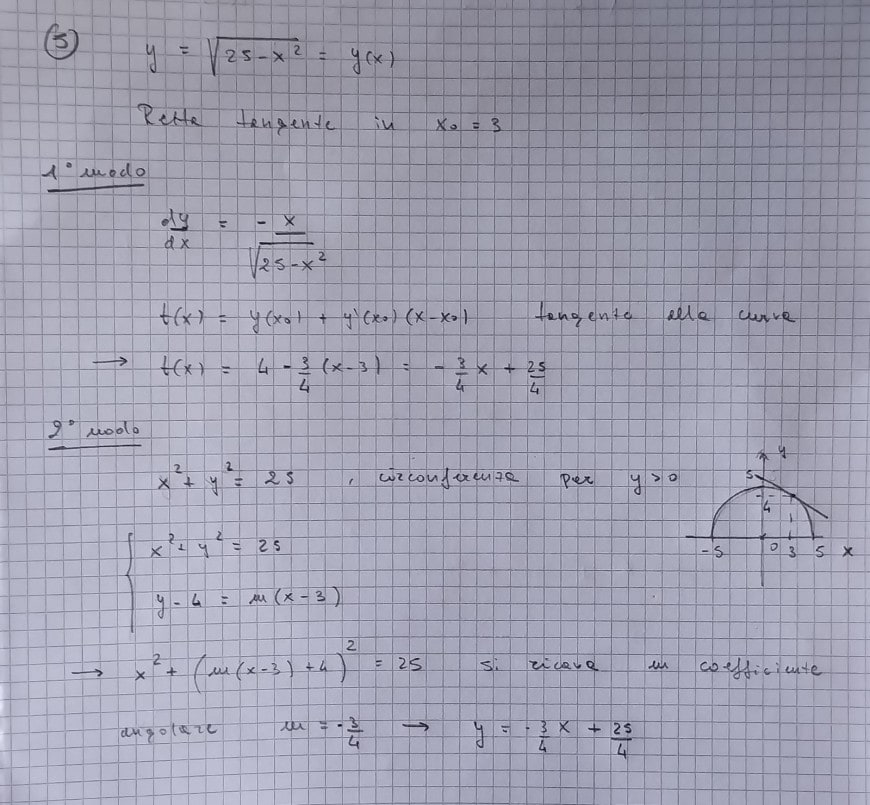 5
y = √(25-x²) = y(x)
Retta tangente in x₀ = 3
1° modo
dy/dx = -x/√(25-x²)
t(x) = y(x₀) + y'(x₀)(x-x₀) tangente alla curva
→ t(x) = 4 - 3/4 (x-3) = - 3/4 x + 25/4
2° modo
x² + y² = 25 , circonferenza per y > 0
y
5
4
-5 0 3 5 x
{ x² + y² = 25
y - 4 = m(x-3)
→ x² + (m(x-3)+4)² = 25 si ricava m coefficiente
angolare m = -3/4 → y = -3/4 x + 25/4